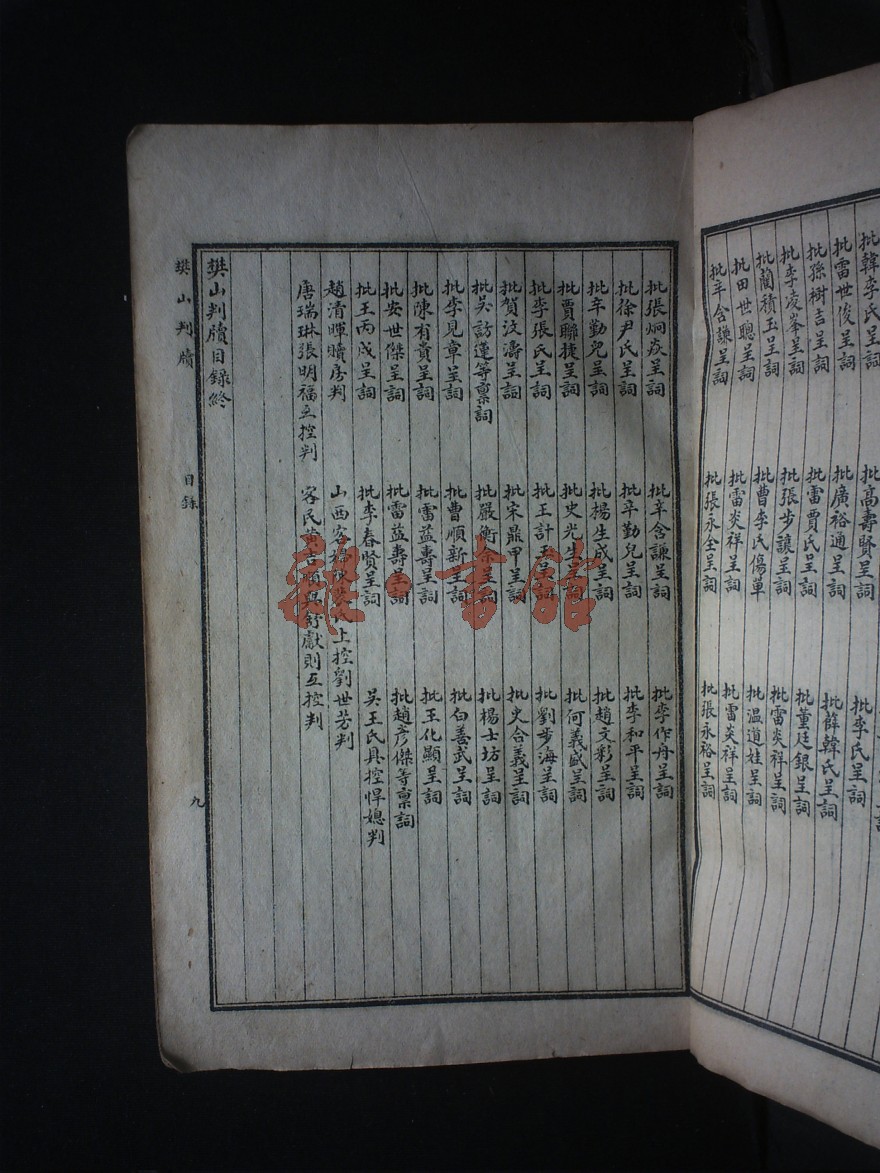 批韓李氏呈詞 批高壽賢呈詞
批雷世俊呈詞 批廣裕通呈詞 批李氏呈詞
批孫樹吉呈詞 批雷賈氏呈詞 批薛韓氏呈詞
批李凌峯呈詞 批張步讓呈詞 批董廷銀呈詞
批藺積玉呈詞 批曹李氏傷單 批雷炎祥呈詞
批田世聰呈詞 批雷炎祥呈詞 批温道娃呈詞
批辛含謙呈詞 批張永全呈詞 批雷炎祥呈詞
批張永裕呈詞
批張炯焱呈詞 批辛含謙呈詞 批李作舟呈詞
批徐尹氏呈詞 批辛勤兒呈詞 批李和平呈詞
批辛勤兒呈詞 批楊生成呈詞 批趙文彩呈詞
批賈聯捷呈詞 批史光生呈詞 批何義盛呈詞
批李張氏呈詞 批王計玉呈詞 批劉步海呈詞
批賀汶濤呈詞 批宋鼎甲呈詞 批史合義呈詞
批吳訪蓮等稟詞 批嚴衡余呈詞 批楊士坊呈詞
批李見章呈詞 批曹順新呈詞 批白善武呈詞
批陳有貴呈詞 批雷益壽呈詞 批王化顯呈詞
批安世傑呈詞 批雷益壽呈詞 批趙彥傑等稟詞
批王丙戌呈詞 批李春賢呈詞 吳王氏具控悍媳判
趙清暉贖房判 山西客氏上控劉世芳判
唐瑞琳張明福互控判 客民黄吉順與舒獻則互控判
樊山判牘目錄終
樊山判牘 目錄 九
雜·書館